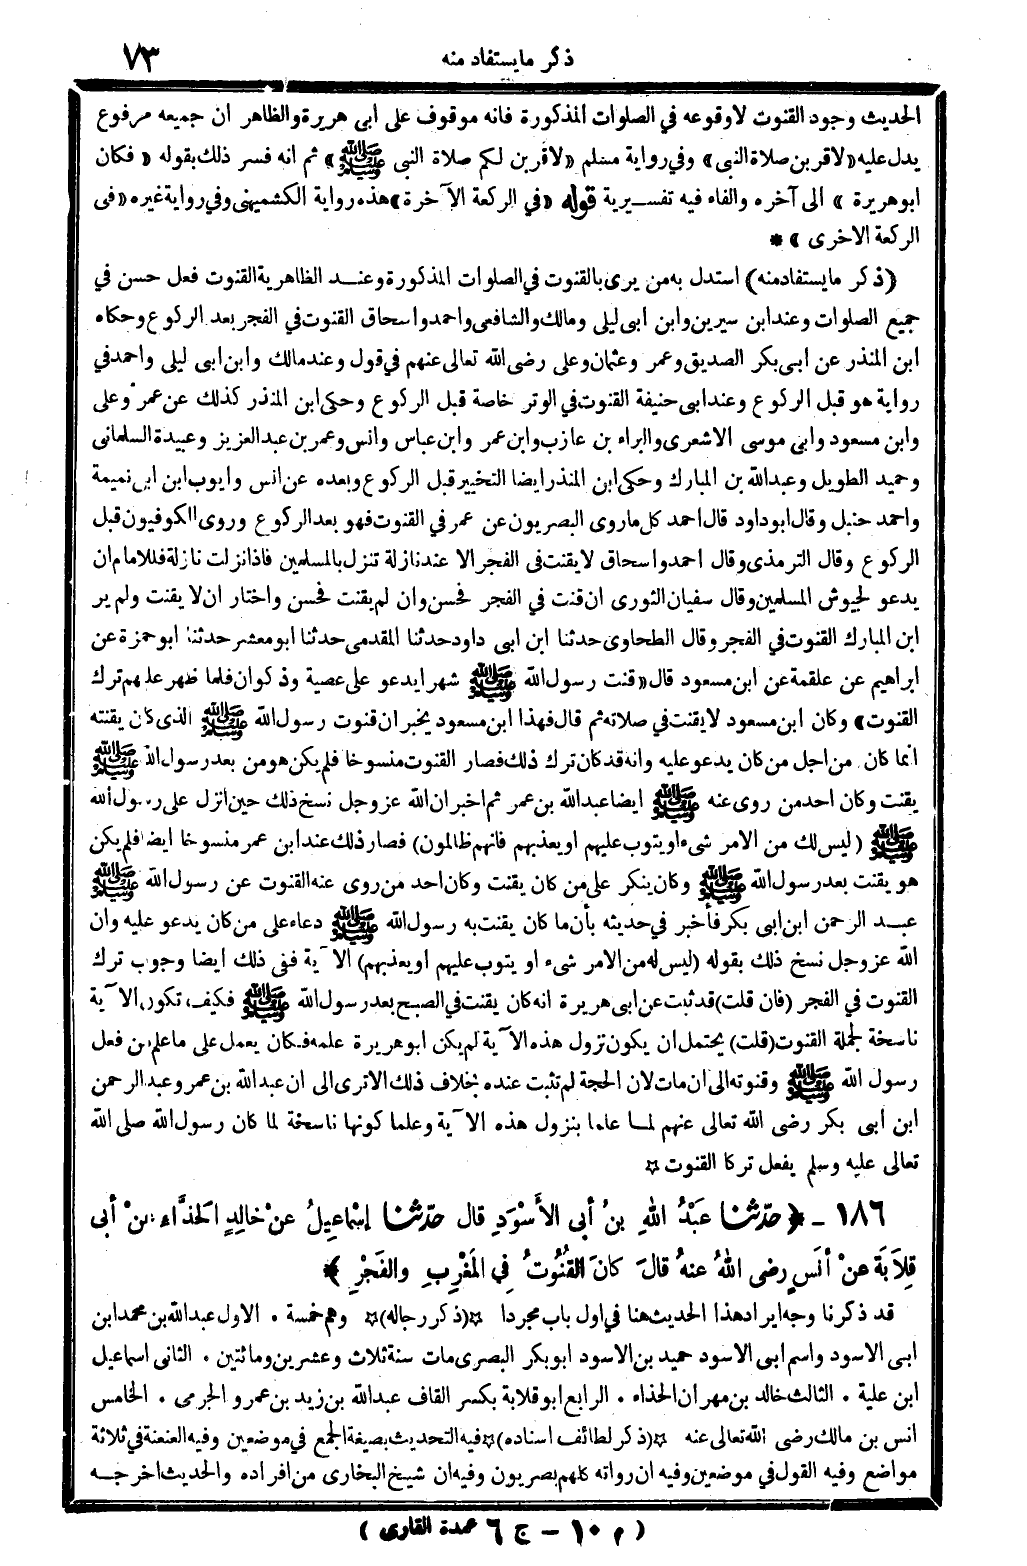 ذكر مايستفاد منه ٧٣
الحديث وجود القنوت لاوقوعه في الصلوات المذكورة فانه موقوف على ابى هريرة والظاهر ان جميعه مرفوع
يدل عليه «لاقربن صلاة النبي» وفي رواية مسلم «لاقربن لكم صلاة النبى ﷺ» ثم انه فسر ذلك بقوله «فكان
ابو هريرة» الى آخره والفاء فيه تفسيرية قوله «في الركعة الآخرة» هذه رواية الكشميهنى وفي رواية غيره «فى
الركعة الاخرى» *
(ذكر مايستفادمنه) استدل به من يرى بالقنوت في الصلوات المذكورة وعند الظاهرية القنوت فعل حسن في
جميع الصلوات وعند ابن سيرين وابن ابى ليلى ومالك والشافعى واحمد واسحاق القنوت في الفجر بعد الركوع وحكاه
ابن المنذر عن ابى بكر الصديق وعمر وعثمان وعلى رضى الله تعالى عنهم في قول وعند مالك وابن ابى ليلى واحمد في
رواية هو قبل الركوع وعند ابى حنيفة القنوت في الوتر خاصة قبل الركوع وحكى ابن المنذر كذلك عن عمر وعلى
وابن مسعود وابى موسى الاشعرى والبراء بن عازب وابن عمر وابن عباس وانس وعمر بن عبد العزيز وعبيدة السلمانى
وحميد الطويل وعبد الله بن المبارك وحكى ابن المنذر ايضا التخيير قبل الركوع وبعده عن انس وايوب ابن ابى نميمة
واحمد حنبل وقال ابو داود قال احمد كل ماروى البصريون عن عمر في القنوت فهو بعد الركوع وروى الكوفيون قبل
الركوع وقال الترمذى وقال احمد واسحاق لايقنت فى الفجر الا عند نازلة تنزل بالمسلمين فاذا نزلت نازلة فللامام ان
يدعو لجيوش المسلمين وقال سفيان الثورى ان قنت في الفجر فحسن وان لم يقنت فحسن واختار ان لا يقنت ولم ير
ابن المبارك القنوت في الفجر وقال الطحاوى حدثنا ابن ابى داود حدثنا المقدمى حدثنا ابو معشر حدثنا ابو حمزة عن
ابراهيم عن علقمة عن ابن مسعود قال «قنت رسول الله ﷺ شهرا يدعو على عصية وذكوان فلما ظهر عليهم ترك
القنوت» وكان ابن مسعود لايقنت في صلاته ثم قال فهذا ابن مسعود يخبر ان قنوت رسول الله ﷺ الذى كان يقنته
انما كان من اجل من كان يدعو عليه وانه قد كان ترك ذلك فصار القنوت منسوخا فلم يكن هو من بعد رسول الله ﷺ
يقنت وكان احد من روى عنه ﷺ ايضا عبد الله بن عمر ثم اخبر ان الله عز وجل نسخ ذلك حين انزل على رسول الله
ﷺ (ليس لك من الامر شىء او يتوب عليهم او يعذبهم فانهم ظالمون) فصار ذلك عند ابن عمر منسوخا ايضا فلم يكن
هو يقنت بعد رسول الله ﷺ وكان ينكر على من كان يقنت وكان احد من روى عنه القنوت عن رسول الله ﷺ
عبد الرحمن ابن ابى بكر فأخبر في حديثه بأن ما كان يقنت به رسول الله ﷺ دعاء على من كان يدعو عليه وان
الله عز وجل نسخ ذلك بقوله (ليس له من الامر شىء او يتوب عليهم او يعذبهم) الآية ففى ذلك ايضا وجوب ترك
القنوت في الفجر (فان قلت) قد ثبت عن ابى هريرة انه كان يقنت في الصبح بعد رسول الله ﷺ فكيف تكون الآية
ناسخة لجملة القنوت (قلت) يحتمل ان يكون نزول هذه الآية لم يكن ابو هريرة علمه فكان يعمل على ما علم من فعل
رسول الله ﷺ وقنوته الى ان مات لان الحجة لم تثبت عنده بخلاف ذلك الاترى الى ان عبد الله بن عمر وعبد الرحمن
ابن أبى بكر رضى الله تعالى عنهم لما علما بنزول هذه الآية وعلما كونها ناسخة لما كان رسول الله صلى الله
تعالى عليه وسلم يفعل تركا القنوت ☆
١٨٦ - ﴿حدّثنا عَبْدُ اللهِ بنُ أبى الأَسْوَدِ قال حدّثنا إسْماعِيلُ عنْ خالِدٍ الحَذَّاءِ عنْ أبى
قِلاَبَةَ عنْ أنَسٍ رضى اللهُ عنهُ قالَ كانَ القُنُوتُ فِي المَغْرِبِ والفَجْرِ﴾
قد ذكرنا وجه ايراد هذا الحديث هنا في اول باب مجردا ☆(ذكر رجاله)☆ وهم خمسة . الاول عبد الله بن محمد ابن
ابى الاسود واسم ابى الاسود حميد بن الاسود ابو بكر البصرى مات سنة ثلاث وعشرين ومائتين . الثانى اسماعيل
ابن علية . الثالث خالد بن مهران الحذاء . الرابع ابو قلابة بكسر القاف عبد الله بن زيد بن عمرو الجرمى . الخامس
انس بن مالك رضى الله تعالى عنه ☆(ذكر لطائف اسناده)☆ فيه التحديث بصيغة الجمع في موضعين وفيه العنعنة في ثلاثة
مواضع وفيه القول في موضعين وفيه ان رواته كلهم بصريون وفيه ان شيخ البخارى من افراده والحديث اخرجه
(م ١٠ - ج ٦ عمدة القارى)